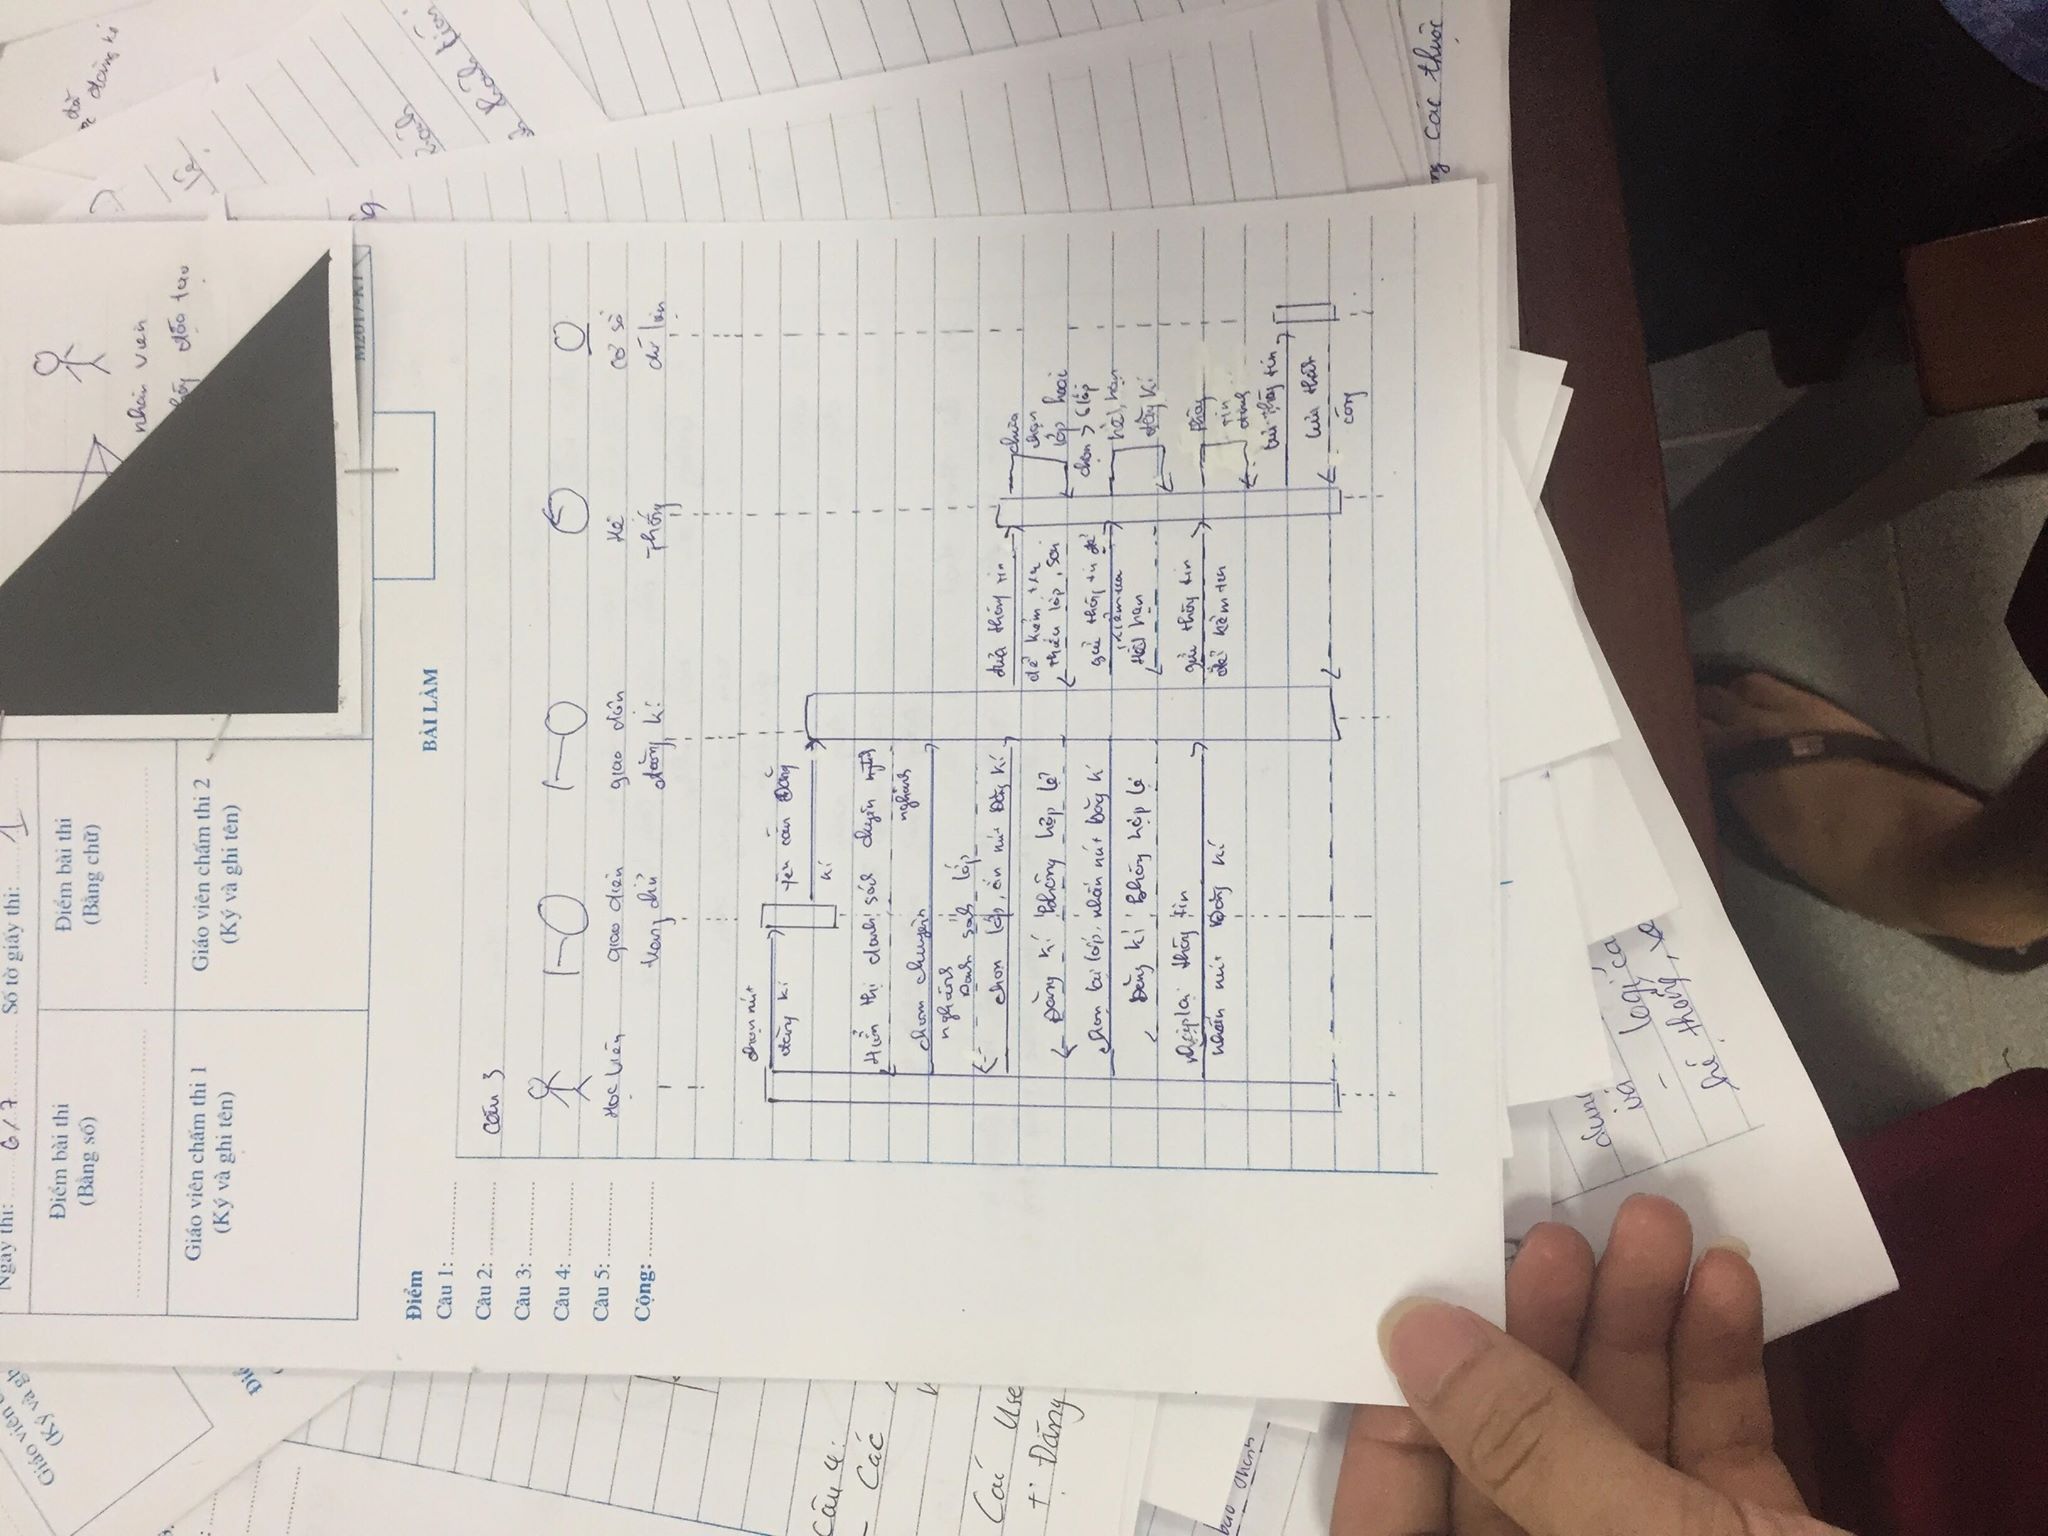 Ngày thi: 6/7 Số tờ giấy thi: 1
Điểm bài thi
(Bằng số)
Điểm bài thi
(Bằng chữ)
Giáo viên chấm thi 1
(Ký và ghi tên)
Giáo viên chấm thi 2
(Ký và ghi tên)
nhân viên
đào tạo
M2017-KT
Điểm
Câu 1:
Câu 2:
Câu 3:
Câu 4:
Câu 5:
Cộng:
BÀI LÀM
Câu 3
Học viên
giao diện
trang chủ
giao diện
đăng kí
Hệ
Thống
cơ sở
dữ liệu
chọn nút
đăng kí
yêu cầu Đăng
kí
Hiển thị danh sách chuyên
nghành
chọn chuyên
nghành
Danh sách lớp
chọn lớp, ấn nút Đăng kí
đưa thông tin
để kiểm tra
chưa
chọn
lớp hoặc
chọn > 6 lớp
Đăng kí không hợp lệ
thiếu lớp,
chọn lại lớp, nhấn nút Đăng kí
gửi thông tin để
kiểm tra
hết hạn
đăng kí
Đăng kí không hợp lệ
Hết hạn
thông tin
nhấn nút Đăng kí
gửi thông tin
để kiểm tra
thông
tin
đúng
lưu thông tin
lưu thành
công
Câu 4:
- Các
Các Use
+ Đăng
Giáo viên
(Ký và gh
các thuộc
dung
và
- logic
hệ thống,